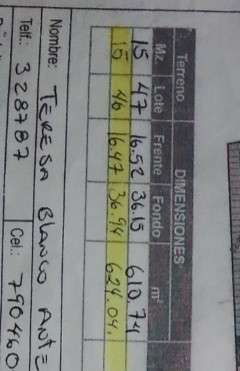 Terreno DIMENSIONES
Mz. Lote Frente Fondo m²
15 47 16.52 36.15 610.74
15 46 16.47 36.94 624.04.
Nombre: TERESA BLANCO ANTE
Telf.: 328787 Cel.: 790460